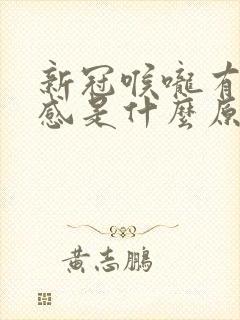 新冠喉嚨有
感是什麼原
黃志鵬